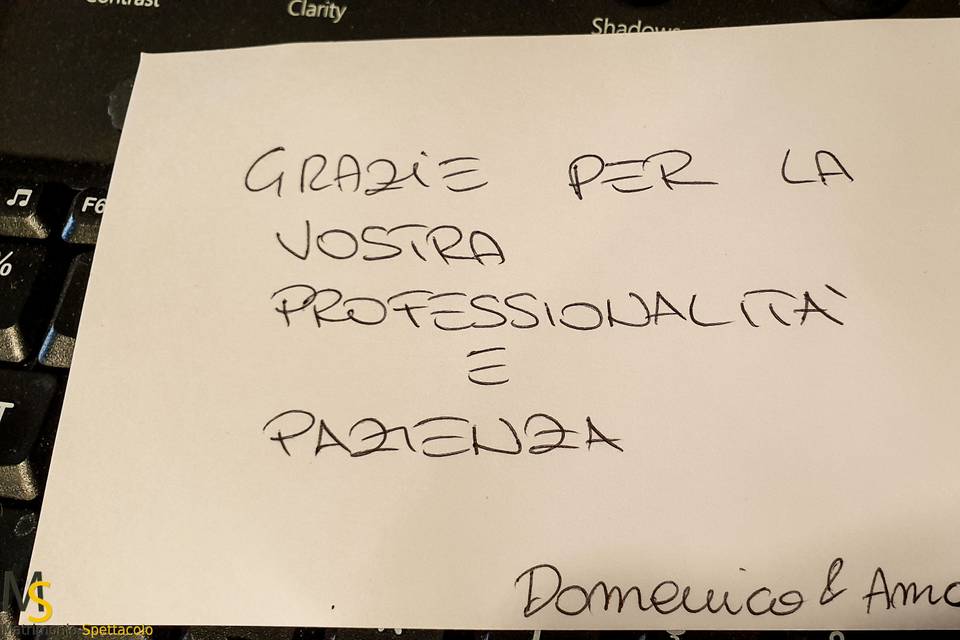 Contrast
Clarity
Shadows
F6
%
GRAZIE PER LA
VOSTRA
PROFESSIONALITÀ
E
PAZIENZA
Domenico &
MS
Matrimonio Spettacolo